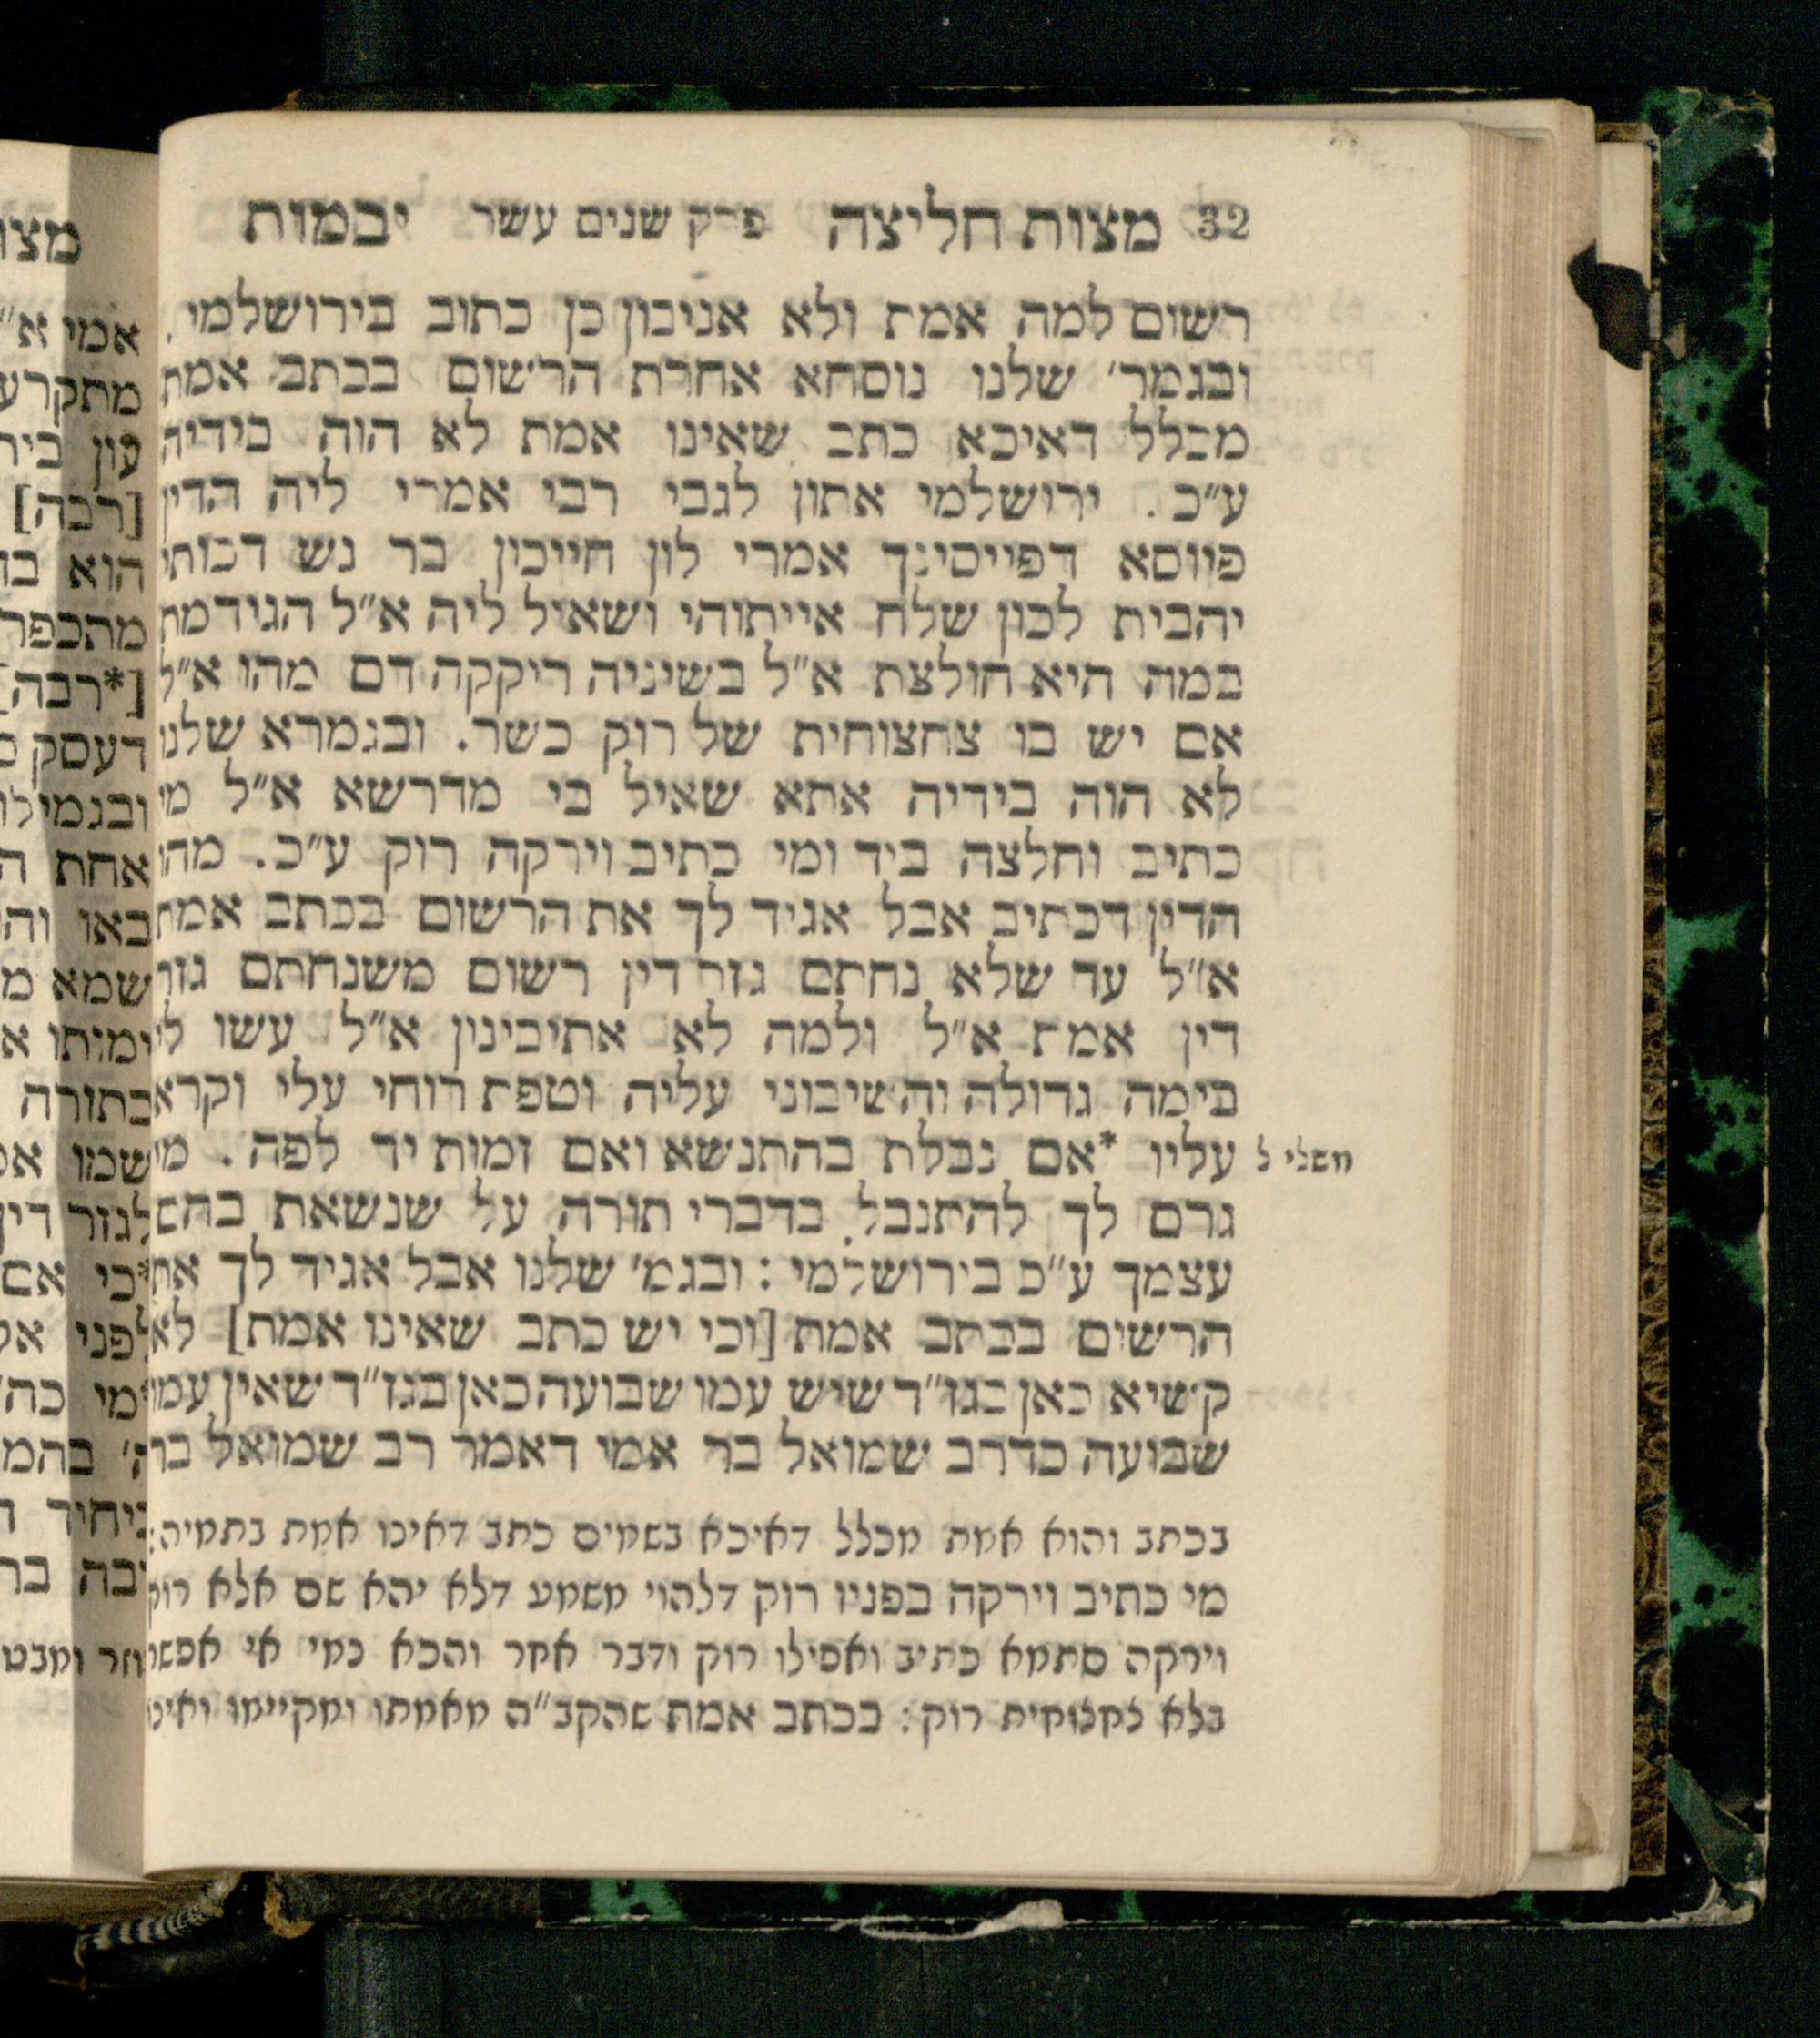 32 מצות חליצה פרק שנים עשר יבמות
רשום למה אמת ולא אניבון כן כתוב בירושלמי.
ובגמר׳ שלנו נוסחא אחרת הרשום בכתב אמת
מכלל דאיכא כתב שאינו אמת לא הוה בידיה
ע״כ. ירושלמי אתון לגבי רבי אמרי ליה הדין
פיוסא דפייסינך אמרי לון חייכון בר נש דכותי
יהבית לכון שלח אייתוהי ושאיל ליה א״ל הגידמת
במה היא חולצת א״ל בשיניה ריקקה דם מהו א״ל
אם יש בו צחצוחית של רוק כשר. ובגמרא שלנו
לא הוה בידיה אתא שאיל בי מדרשא א״ל מי
כתיב וחלצה ביד ומי כתיב וירקה רוק ע״כ. מהו
הדין דכתיב אבל אגיד לך את הרשום בכתב אמת
א״ל עד שלא נחתם גזר דין רשום משנחתם גזר
דין אמת א״ל ולמה לא אתיבינון א״ל עשו לי
בימה גדולה והשיבוני עליה וטפת רוחי עלי וקרא
עליו *אם נבלת בהתנשא ואם זמות יד לפה. מי
משלי ל
גרם לך להתנבל בדברי תורה על שנשאת בהם
עצמך ע״כ בירושלמי: ובגמ׳ שלנו אבל אגיד לך את
הרשום בכתב אמת [וכי יש כתב שאינו אמת] לא
קשיא כאן בגז״ד שיש עמו שבועה כאן בגז״ד שאין עמו
שבועה כדרב שמואל בר אמי דאמר רב שמואל בר
בכתב והוא אמת מכלל דאיכא בשמים כתב דאינו אמת בתמיה:
מי כתיב וירקה בפניו רוק דלהוי משמע דלא יהא שם אלא רוק
וירקה סתמא כתיב ואפילו רוק ודבר אחר והכא נמי אי אפשר
בלא צחצוחית רוק: בכתב אמת שהקב״ה מאמתו ומקיימו ואינו
מצו
אמי א״
מתקרע
עון
[רבה]
הוא
מתכפר
[*רבה]
דעסק
ובגמילו
אחת
באו
שמא
ימותו
בתורה
שמו
לגזר דין
*כי אם
לפני